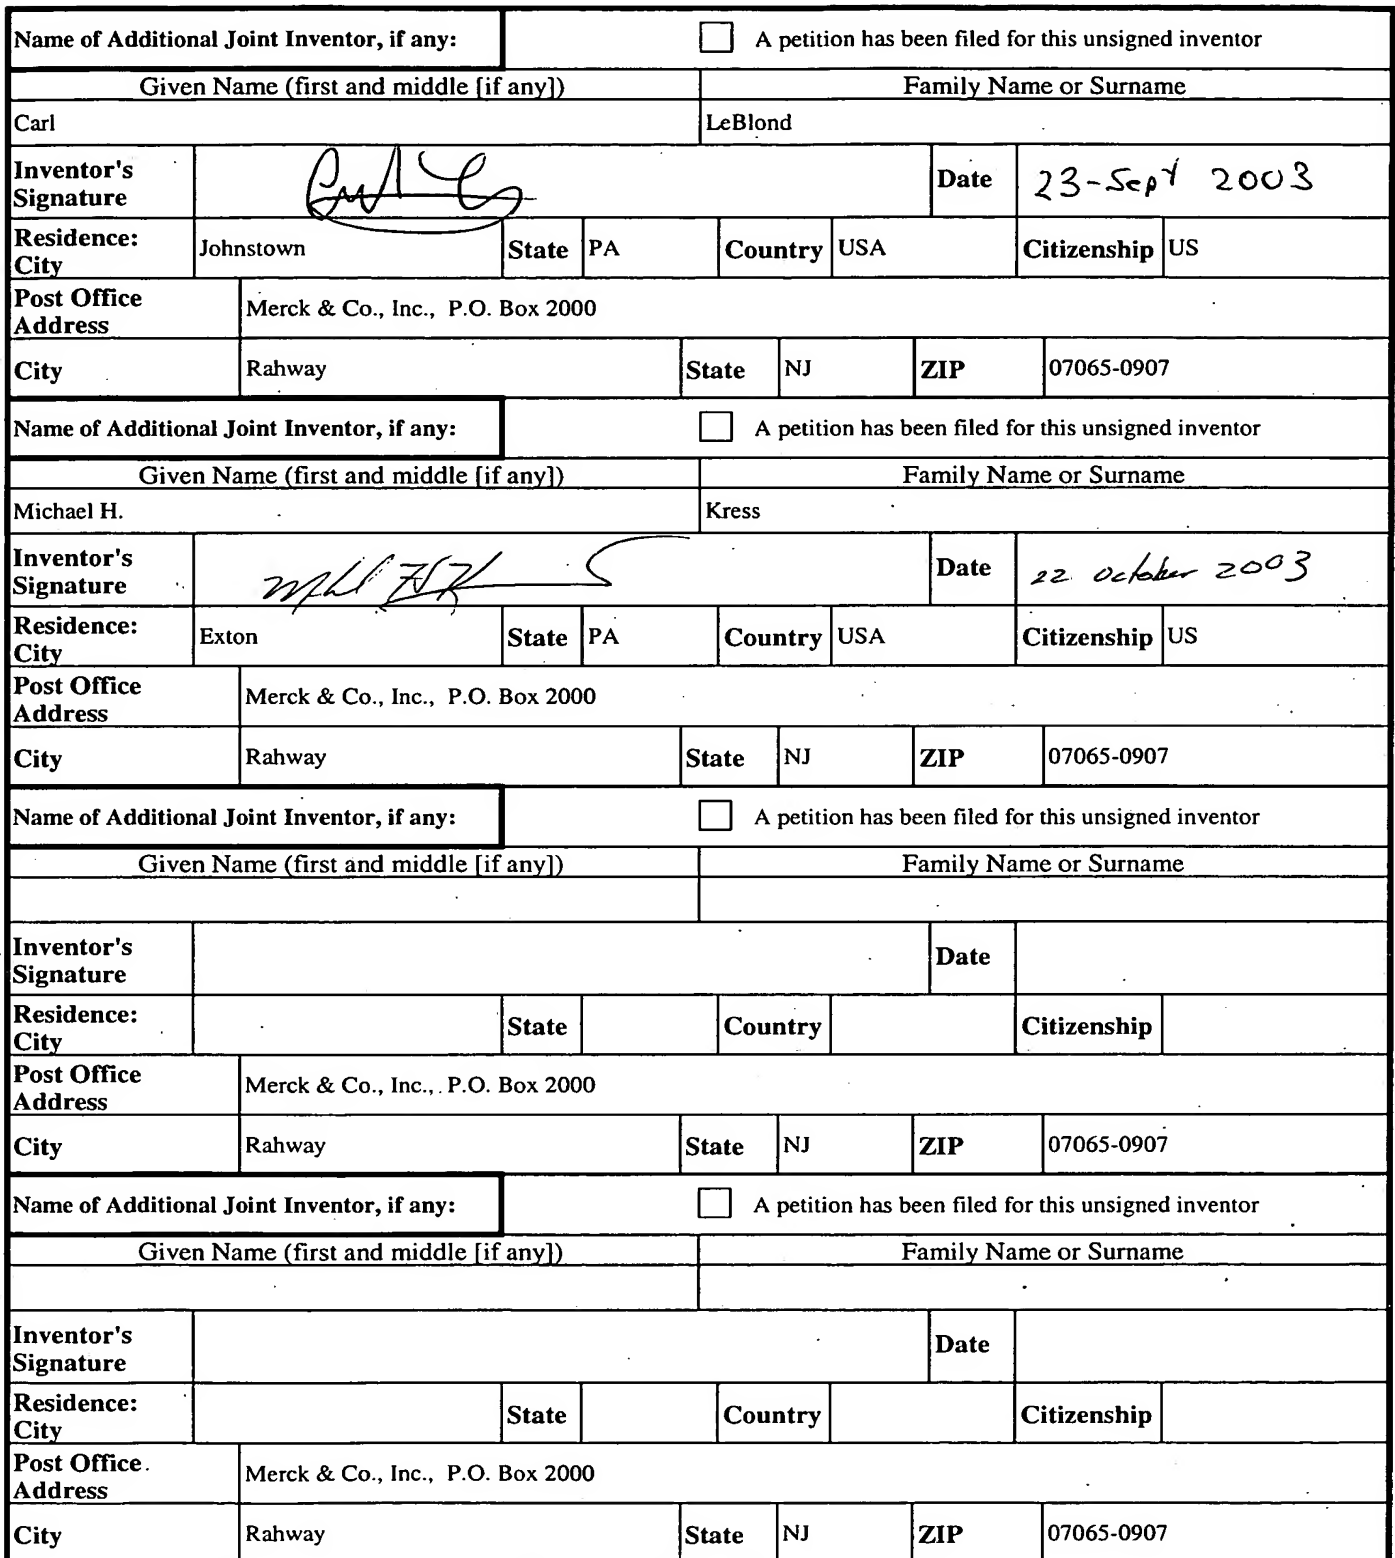 Name of Additional Joint Inventor, if any: A petition has been filed for this unsigned inventor
Given Name (first and middle [if any]) Family Name or Surname
Carl LeBlond
Inventor's Signature Date 23-Sept 2003
Residence: City Johnstown State PA Country USA Citizenship US
Post Office Address Merck & Co., Inc., P.O. Box 2000
City Rahway State NJ ZIP 07065-0907
Name of Additional Joint Inventor, if any: A petition has been filed for this unsigned inventor
Given Name (first and middle [if any]) Family Name or Surname
Michael H. Kress
Inventor's Signature Date 22 October 2003
Residence: City Exton State PA Country USA Citizenship US
Post Office Address Merck & Co., Inc., P.O. Box 2000
City Rahway State NJ ZIP 07065-0907
Name of Additional Joint Inventor, if any: A petition has been filed for this unsigned inventor
Given Name (first and middle [if any]) Family Name or Surname
Inventor's Signature Date
Residence: City State Country Citizenship
Post Office Address Merck & Co., Inc., P.O. Box 2000
City Rahway State NJ ZIP 07065-0907
Name of Additional Joint Inventor, if any: A petition has been filed for this unsigned inventor
Given Name (first and middle [if any]) Family Name or Surname
Inventor's Signature Date
Residence: City State Country Citizenship
Post Office Address Merck & Co., Inc., P.O. Box 2000
City Rahway State NJ ZIP 07065-0907